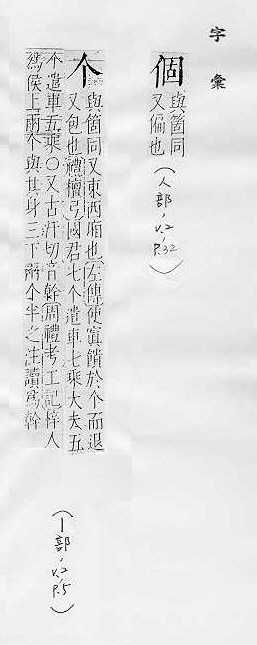 字彙
個 與箇同
又偏也(人部,V.2, P.32)
个 與箇同又東西廂也左傳使寘饋於个而退
又包也禮檀弓國君七个遣車七乘大夫五
个遣車五乘〇又古汗切音幹周禮考工記梓人
爲侯上兩个與其身三下兩个半之注讀爲幹
(丨部,V.2, P.5)